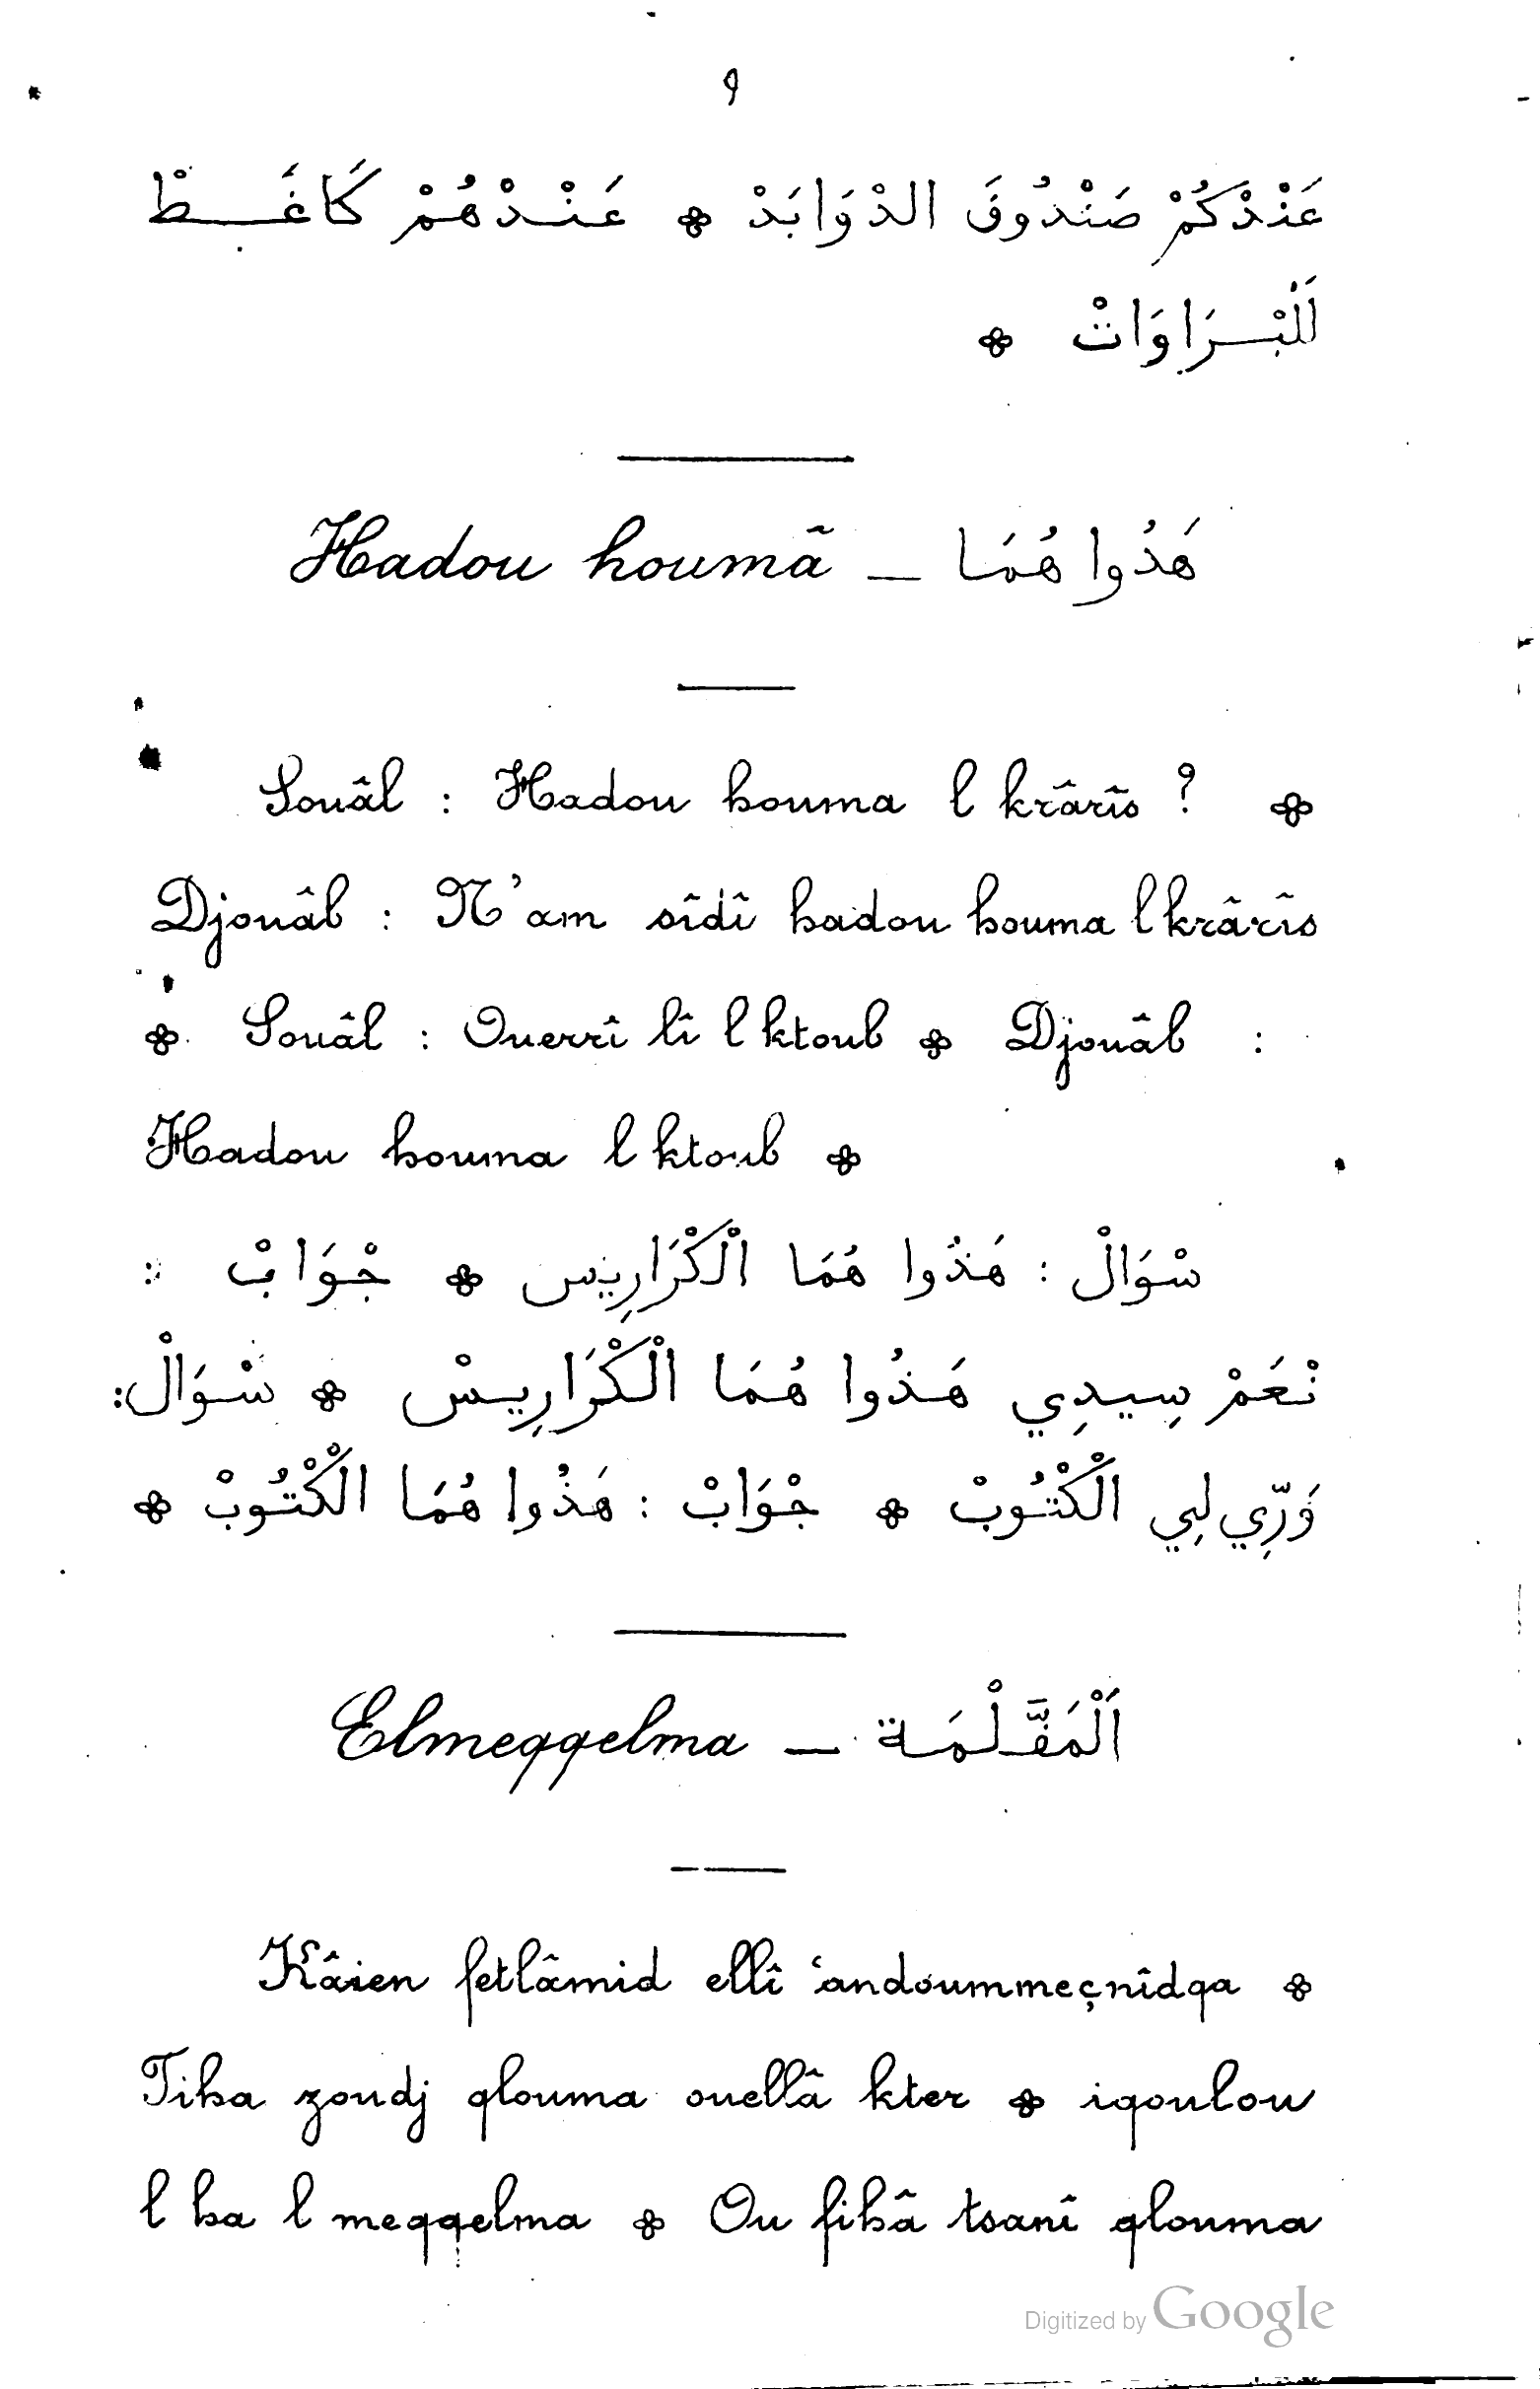 ٩
عَنْدْكُمْ صَنْدُوقَ الدْوَابَدْ ❦ عَنْدْهُمْ كَاغَطْ
لَلْبْرَاوَاتْ ❦
Hadou houmâ — هَدُوا هُمَا
Souâl : Hadou houma l krârîs ? ❦
Djouâb : N'am sîdî hadou houma l krârîs
❦ Souâl : Ouerrî lî l ktoub ❦ Djouâb :
Hadou houma l ktoub ❦
سْوَالْ : هَذُوا هُمَا الْكْرَارِيس ❦ جْوَابْ :
نْعَمْ سِيدِي هَذُوا هُمَا الْكْرَارِيسْ ❦ سْوَالْ:
وَرِّي لِي الْكْتُوبْ ❦ جْوَابْ : هَذُوا هُمَا الْكْتُوبْ ❦
Elmeqqelma — اَلْمَقَّلْمَة
Kâien fetlâmid ellî ‘andoummeçnîdqa ❦
Fiha zoudj qlouma ouellâ kter ❦ iqoulou
l ha l meqqelma ❦ Ou fihâ tsanî qlouma
Digitized by Google